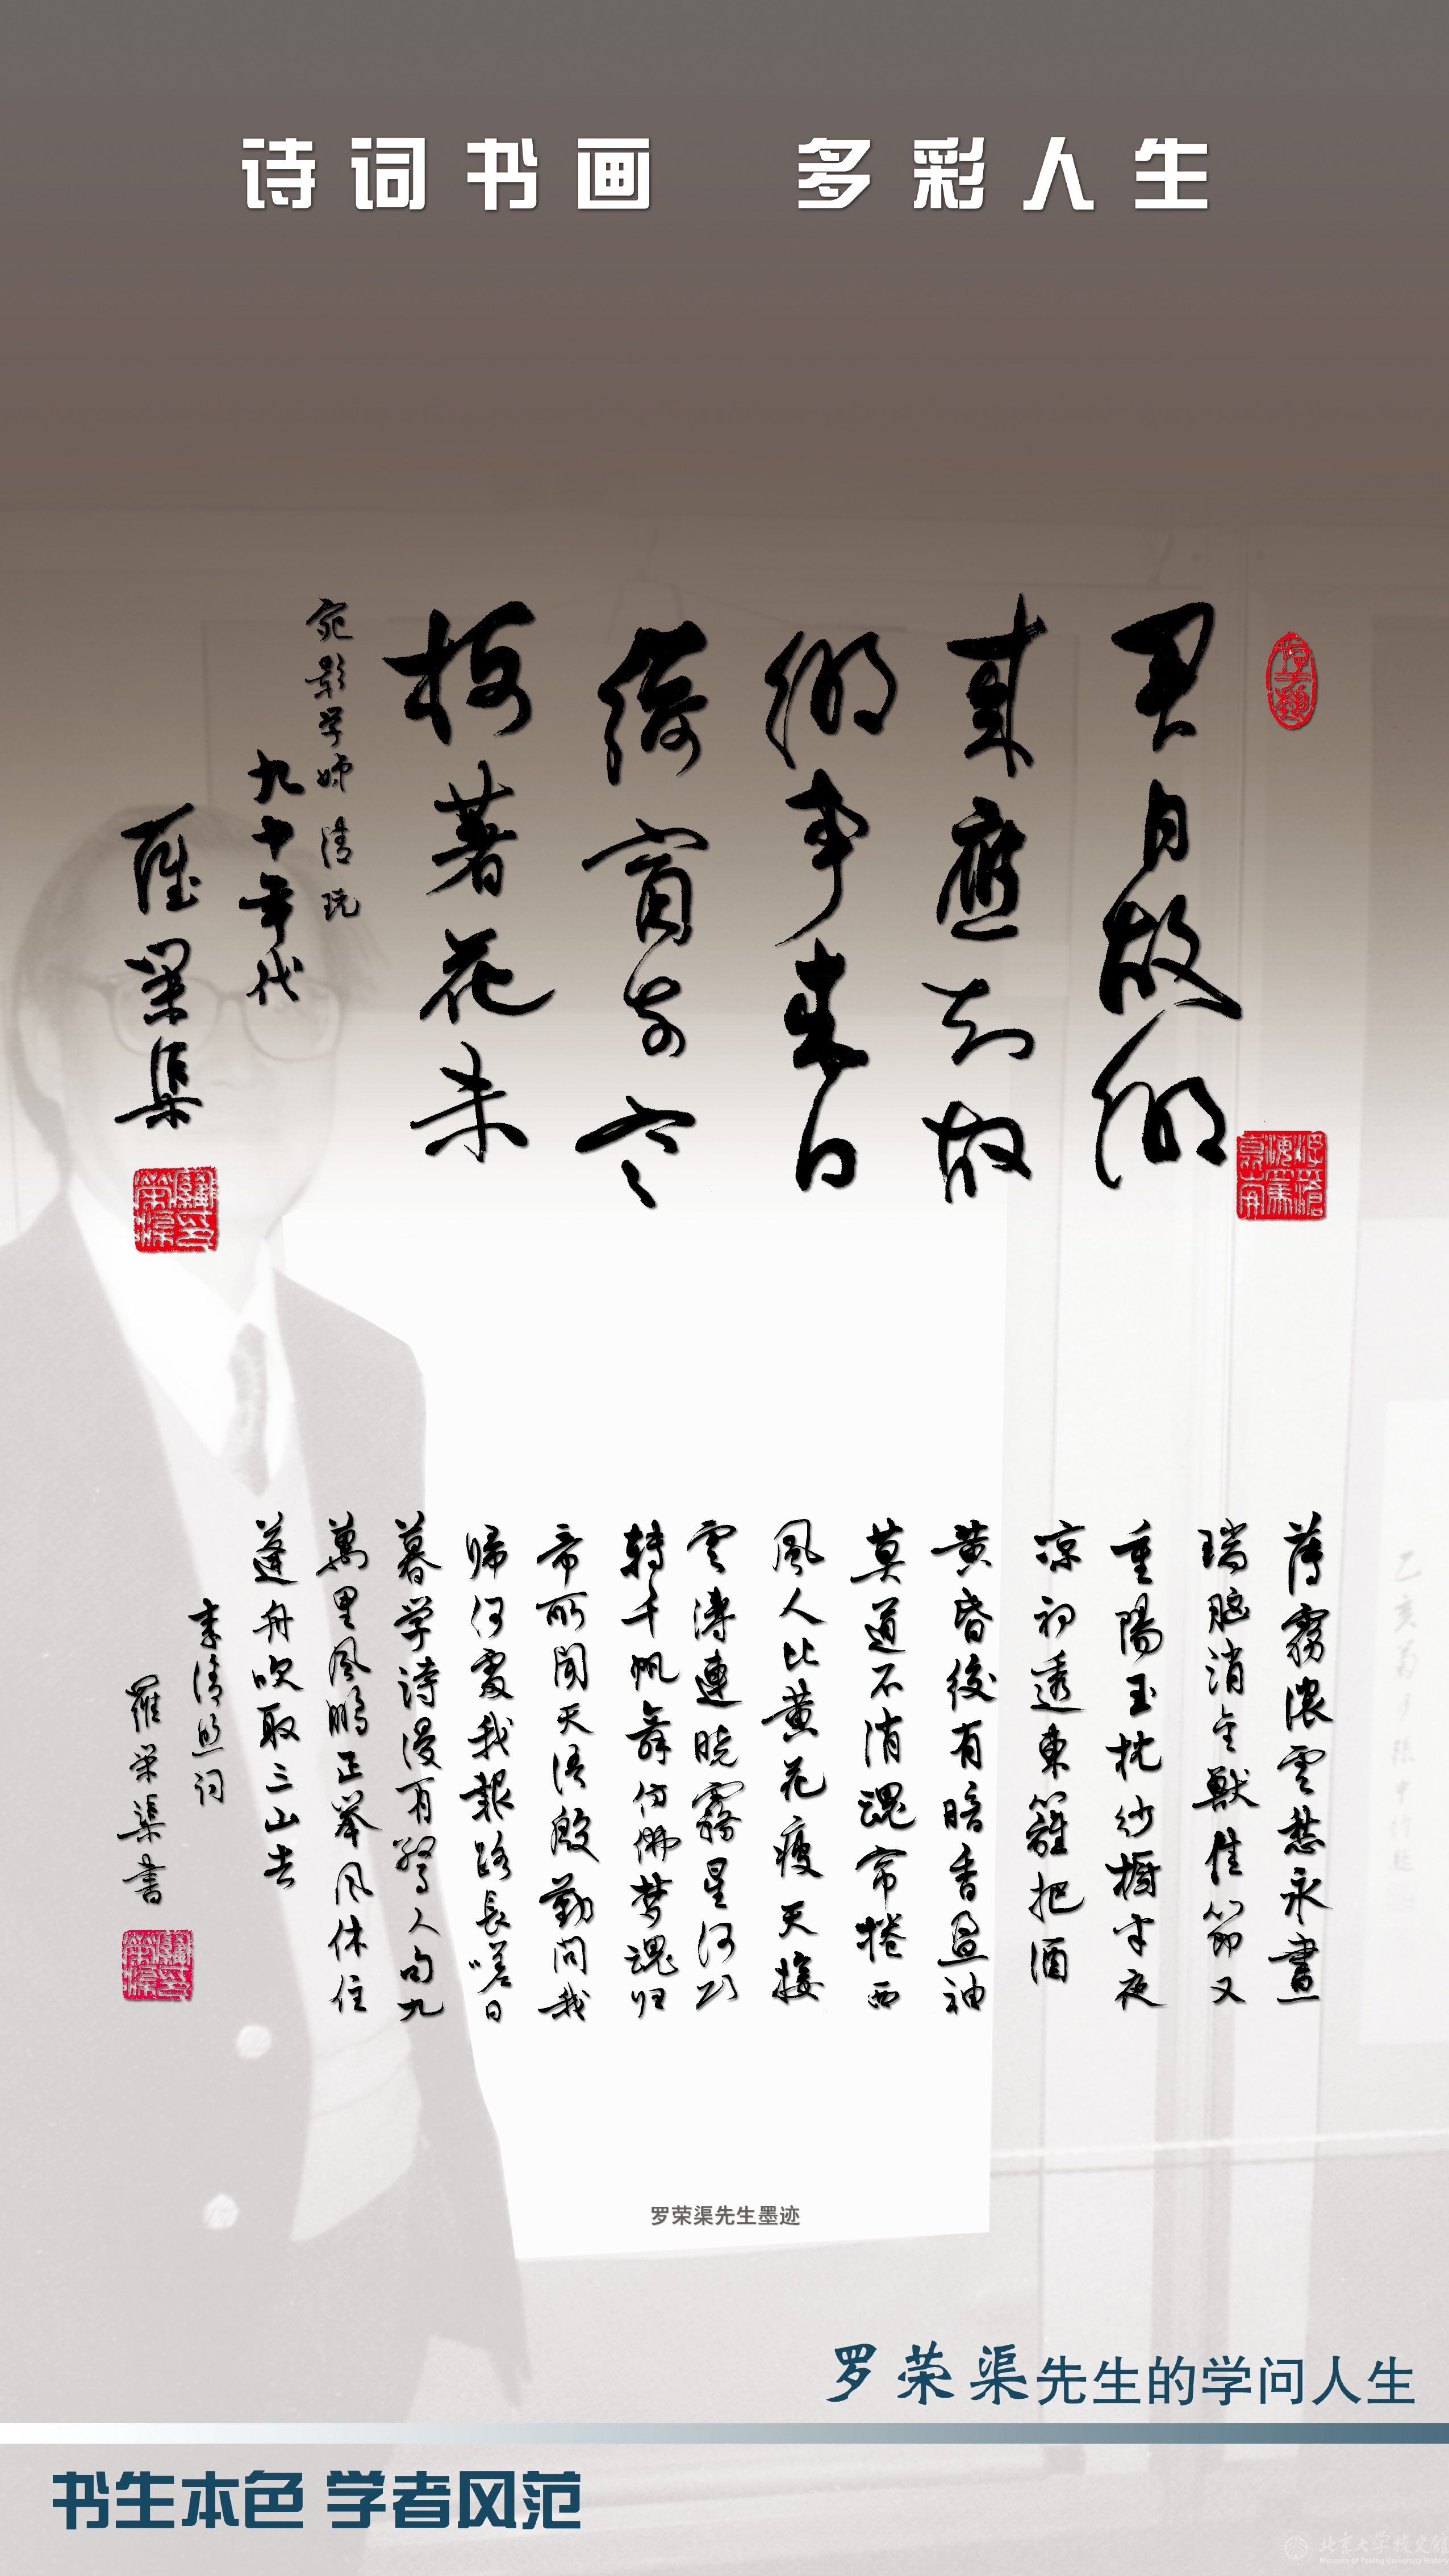 诗词书画 多彩人生
君自故鄉
來應知故
鄉事來日
綺窗前寒
梅著花未
宛影学姊清玩
九十年代
羅榮渠
薄霧濃雲愁永晝
瑞脑消金獸佳節又
重陽玉枕纱橱半夜
凉初透東籬把酒
黄昏後有暗香盈袖
莫道不消魂帘捲西
風人比黄花瘦天接
雲涛連晓霧星河欲
轉千帆舞仿佛梦魂归
帝所闻天语殷勤问我
歸何處我報路長嗟日
暮学诗漫有驚人句九
萬里风鹏正举风休住
蓬舟吹取三山去
李清照词
羅榮渠書
罗荣渠先生墨迹
罗荣渠先生的学问人生
书生本色 学者风范
北京大学校史馆
Museum of Peking University History